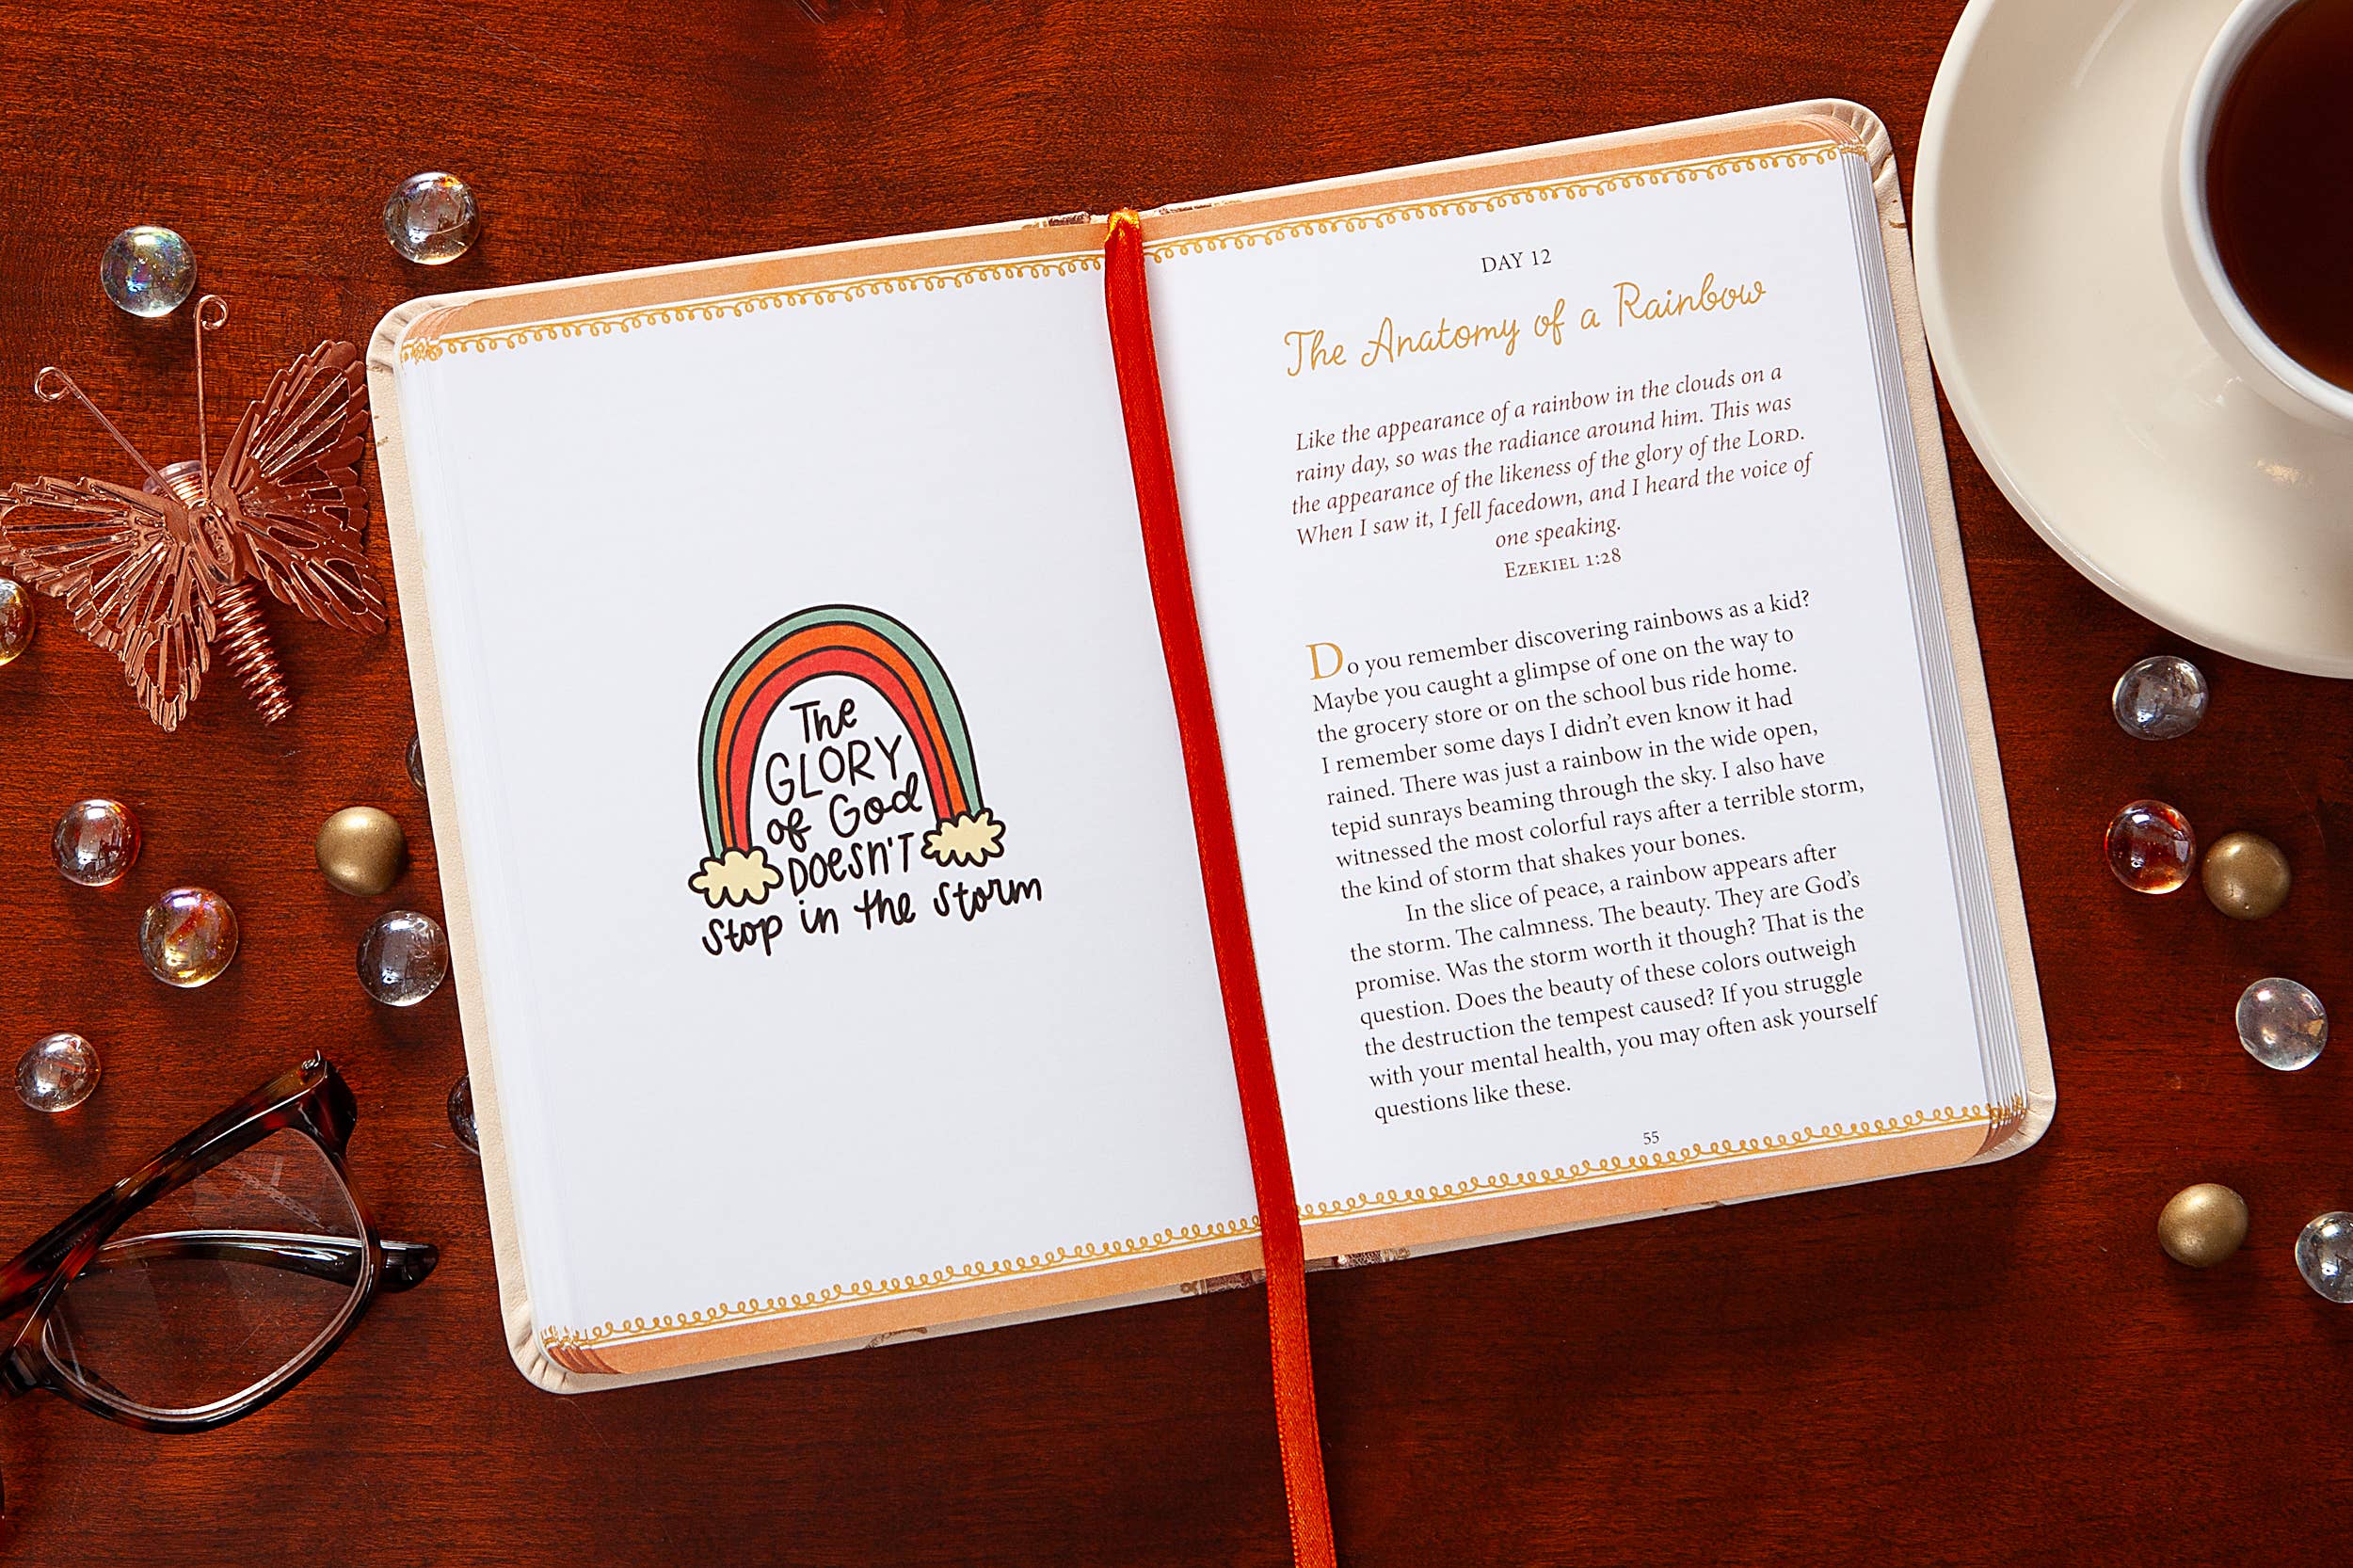 The
GLORY
of God
DOESN'T
Stop in the Storm
DAY 12
The Anatomy of a Rainbow
Like the appearance of a rainbow in the clouds on a
rainy day, so was the radiance around him. This was
the appearance of the likeness of the glory of the LORD.
When I saw it, I fell facedown, and I heard the voice of
one speaking.
EZEKIEL 1:28
Do you remember discovering rainbows as a kid?
Maybe you caught a glimpse of one on the way to
the grocery store or on the school bus ride home.
I remember some days I didn't even know it had
rained. There was just a rainbow in the wide open,
tepid sunrays beaming through the sky. I also have
witnessed the most colorful rays after a terrible storm,
the kind of storm that shakes your bones.
In the slice of peace, a rainbow appears after
the storm. The calmness. The beauty. They are God's
promise. Was the storm worth it though? That is the
question. Does the beauty of these colors outweigh
the destruction the tempest caused? If you struggle
with your mental health, you may often ask yourself
questions like these.
55